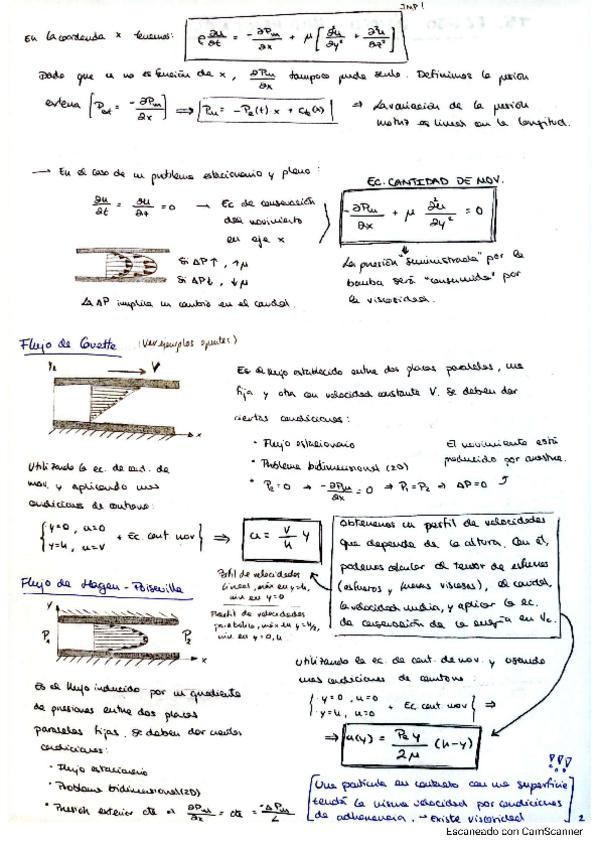 IMP!
En la coordenada x tenemos: ρ ∂u/∂t = - ∂Pm/∂x + μ [∂²u/∂y² + ∂²u/∂z²]
Dado que u no es función de x, ∂Pm/∂x tampoco puede serlo. Definimos la presión
externa [P = - ∂Pm/∂x] ⟹ Pm = -Pe(t) x + (x) ⇒ La variación de la presión
motriz es lineal con la longitud.
→ En el caso de un problema estacionario y plano:
EC. CANTIDAD DE MOV.
∂u/∂t = = 0 → Ec de conservación
del movimiento
en eje x
- ∂Pm/∂x + μ ∂²u/∂y² = 0
Si ΔP↑, ↑μ
Si ΔP↓, ↓μ
La presión "suministrada" por la
bomba será "consumida" por
la viscosidad.
△ ΔP implica un cambio en el caudal.
Flujo de Couette (Ver ejemplos apuntes)
y V
x
Es el flujo establecido entre dos placas paralelas, una
fija y otra con velocidad constante V. Se deben dar
ciertas condiciones:
• Flujo estacionario
• Problema bidimensional (2D)
• Pe = 0 → - ∂Pm/∂x = 0 ⇒ P1 = P2 → ΔP = 0
El movimiento está
producido por arrastre.
Utilizando la ec. de cant. de
mov. y aplicando unas
condiciones de contorno:
{ y=0, u=0
y=h, u=V } + Ec. cant mov ⟹ u = V/h y
Perfil de velocidades
lineal, máx en y=h,
mín en y=0
Perfil de velocidades
parabólico, máx en y=h/2,
mín en y=0,h
Obtenemos un perfil de velocidades
que depende de la altura. Con él,
podemos calcular el tensor de esfuerzos
(esfuerzos y fuerzas viscosas), el caudal,
la velocidad media, y aplicar la ec.
de conservación de la energía en Vc.
Flujo de Hagen-Poiseuille
y
P1 P2
x
Es el flujo inducido por un gradiente
de presiones entre dos placas
paralelas fijas. Se deben dar ciertas
condiciones:
• Flujo estacionario
• Problema bidimensional (2D)
• Presión exterior cte ∂Pm/∂x = cte = -ΔPm/L
Utilizando la ec. de cant. de mov. y usando
unas condiciones de contorno:
{ · y=0, u=0
· y=h, u=0 + Ec. cant mov } ⟹
⟹ u(y) = Pe y/2μ (h-y)
!!!
Una partícula en contacto con una superficie
tendrá la misma velocidad por condiciones
de adherencia. → Existe viscosidad
2
Escaneado con CamScanner